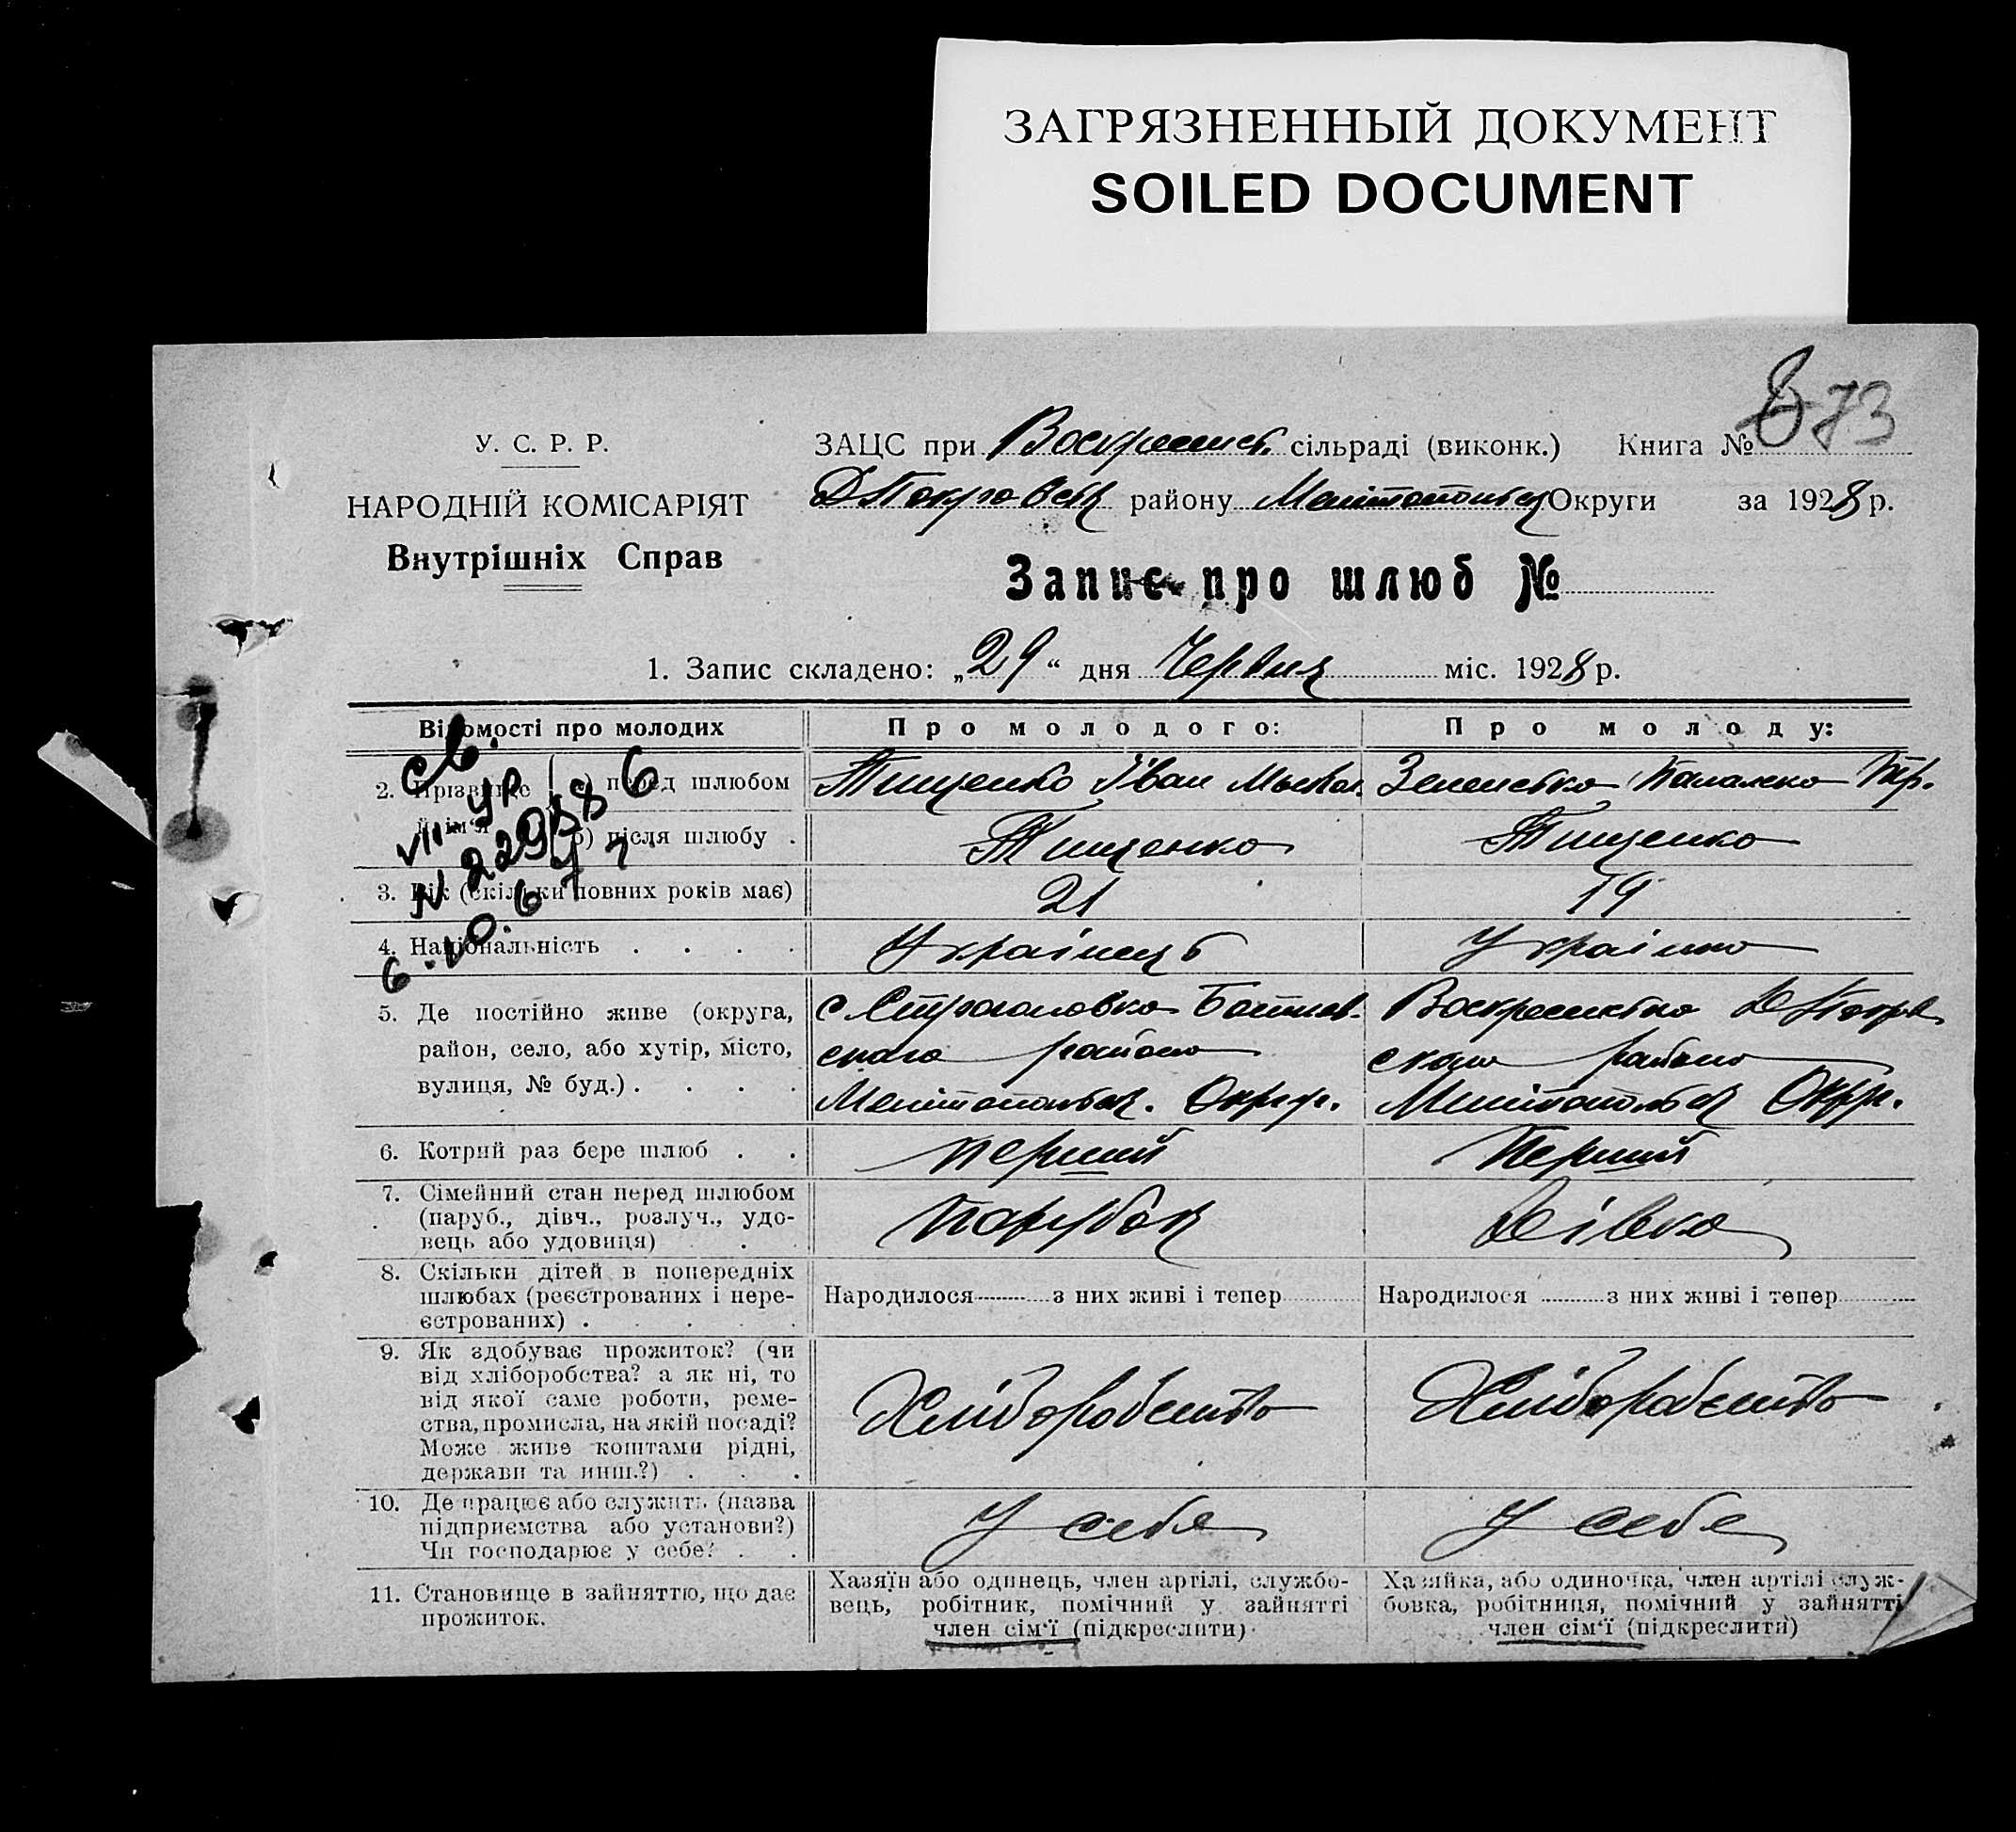 ЗАГРЯЗНЕННЫЙ ДОКУМЕНТ
SOILED DOCUMENT
873
У. С. Р. Р.
НАРОДНІЙ КОМІСАРІЯТ
Внутрішніх Справ
ЗАЦС при Воскресенсь. сільраді (виконк.) Книга №
району Округи за 1928 р.
Запис про шлюб №
1. Запис складено: „29“ дня Червня міс. 1928 р.
Відомості про молодих
Про молодого:
Про молоду:
2. Прізвище й ім'я
а) перед шлюбом
Тищенко Іван
б) після шлюбу .
Тищенко
Тищенко
3. Вік (скільки повних років має)
21
19
4. Національність . . . .
Українець
Українка
5. Де постійно живе (округа,
район, село, або хутір, місто,
вулиця, № буд.) . . . .
с. Строгановка
ского района
Воскресенка
ского района
6. Котрий раз бере шлюб . .
перший
Перший
7. Сімейний стан перед шлюбом
(паруб., дівч., розлуч., удо-
вець або удовиця) .
Парубок
Дівка
8. Скільки дітей в попередніх
шлюбах (реєстрованих і нере-
єстрованих) . . . . .
Народилося з них живі і тепер
Народилося з них живі і тепер
9. Як здобуває прожиток? (чи
від хліборобства? а як ні, то
від якої саме роботи, реме-
ства, промисла, на якій посаді?
Може живе коштами рідні,
держави та инш.?) . . .
Хліборобство
Хліборобство
10. Де працює або служить (назва
підприємства або установи?)
Чи господарює у себе? . .
У себе
У себе
11. Становище в зайняттю, що дає
прожиток.
Хазяїн або одинець, член артілі, службо-
вець, робітник, помічний у зайнятті
член сім'ї (підкреслити)
Хазяйка, або одиночка, член артілі служ-
бовка, робітниця, помічний у зайнятті
член сім'ї (підкреслити)